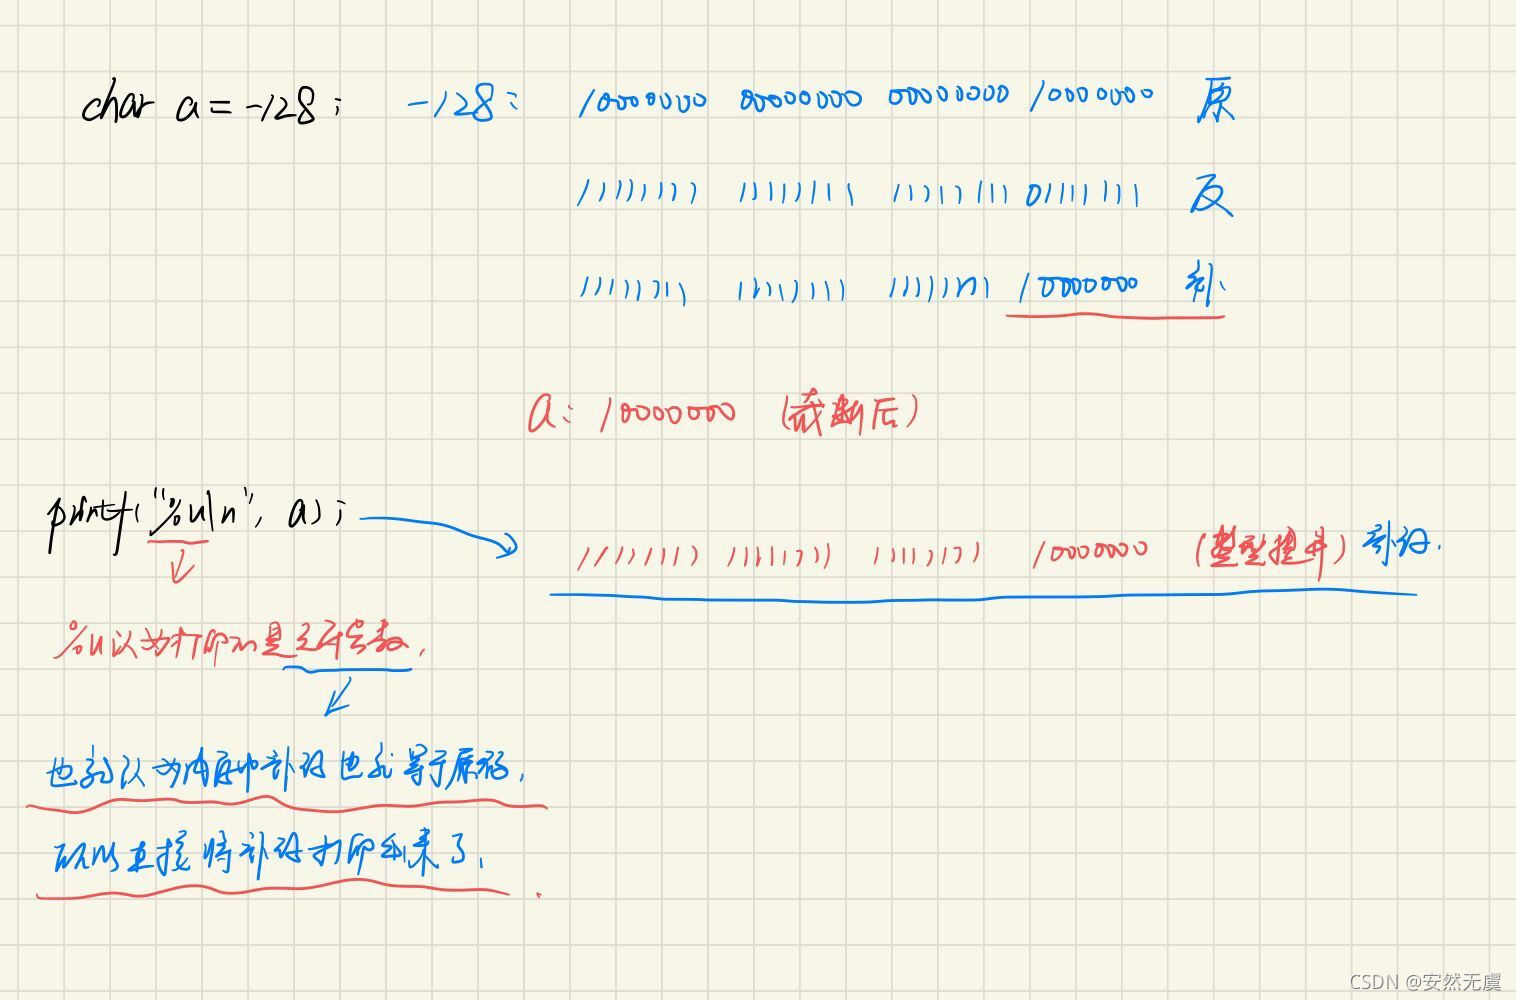 char a = -128; -128: 10000000 00000000 00000000 10000000 原
11111111 11111111 11111111 01111111 反
11111111 11111111 11111111 10000000 补
a: 10000000 (截断后)
printf("%u\n", a); 11111111 11111111 11111111 10000000 (整型提升) 补码.
%u以为打印的是无符号数.
也就认为内存中补码也就等于原码,
所以直接将补码打印出来了.
CSDN @安然无虞